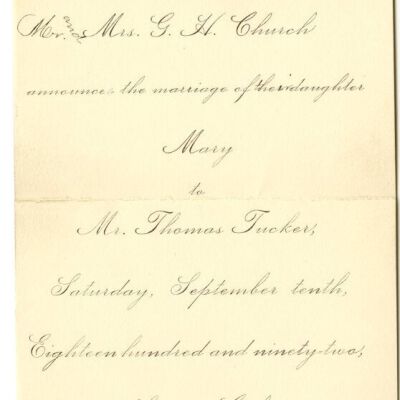 Mr. and Mrs. G. H. Church
announce the marriage of their daughter
Mary
to
Mr. Thomas Tucker,
Saturday, September tenth,
Eighteen hundred and ninety-two,